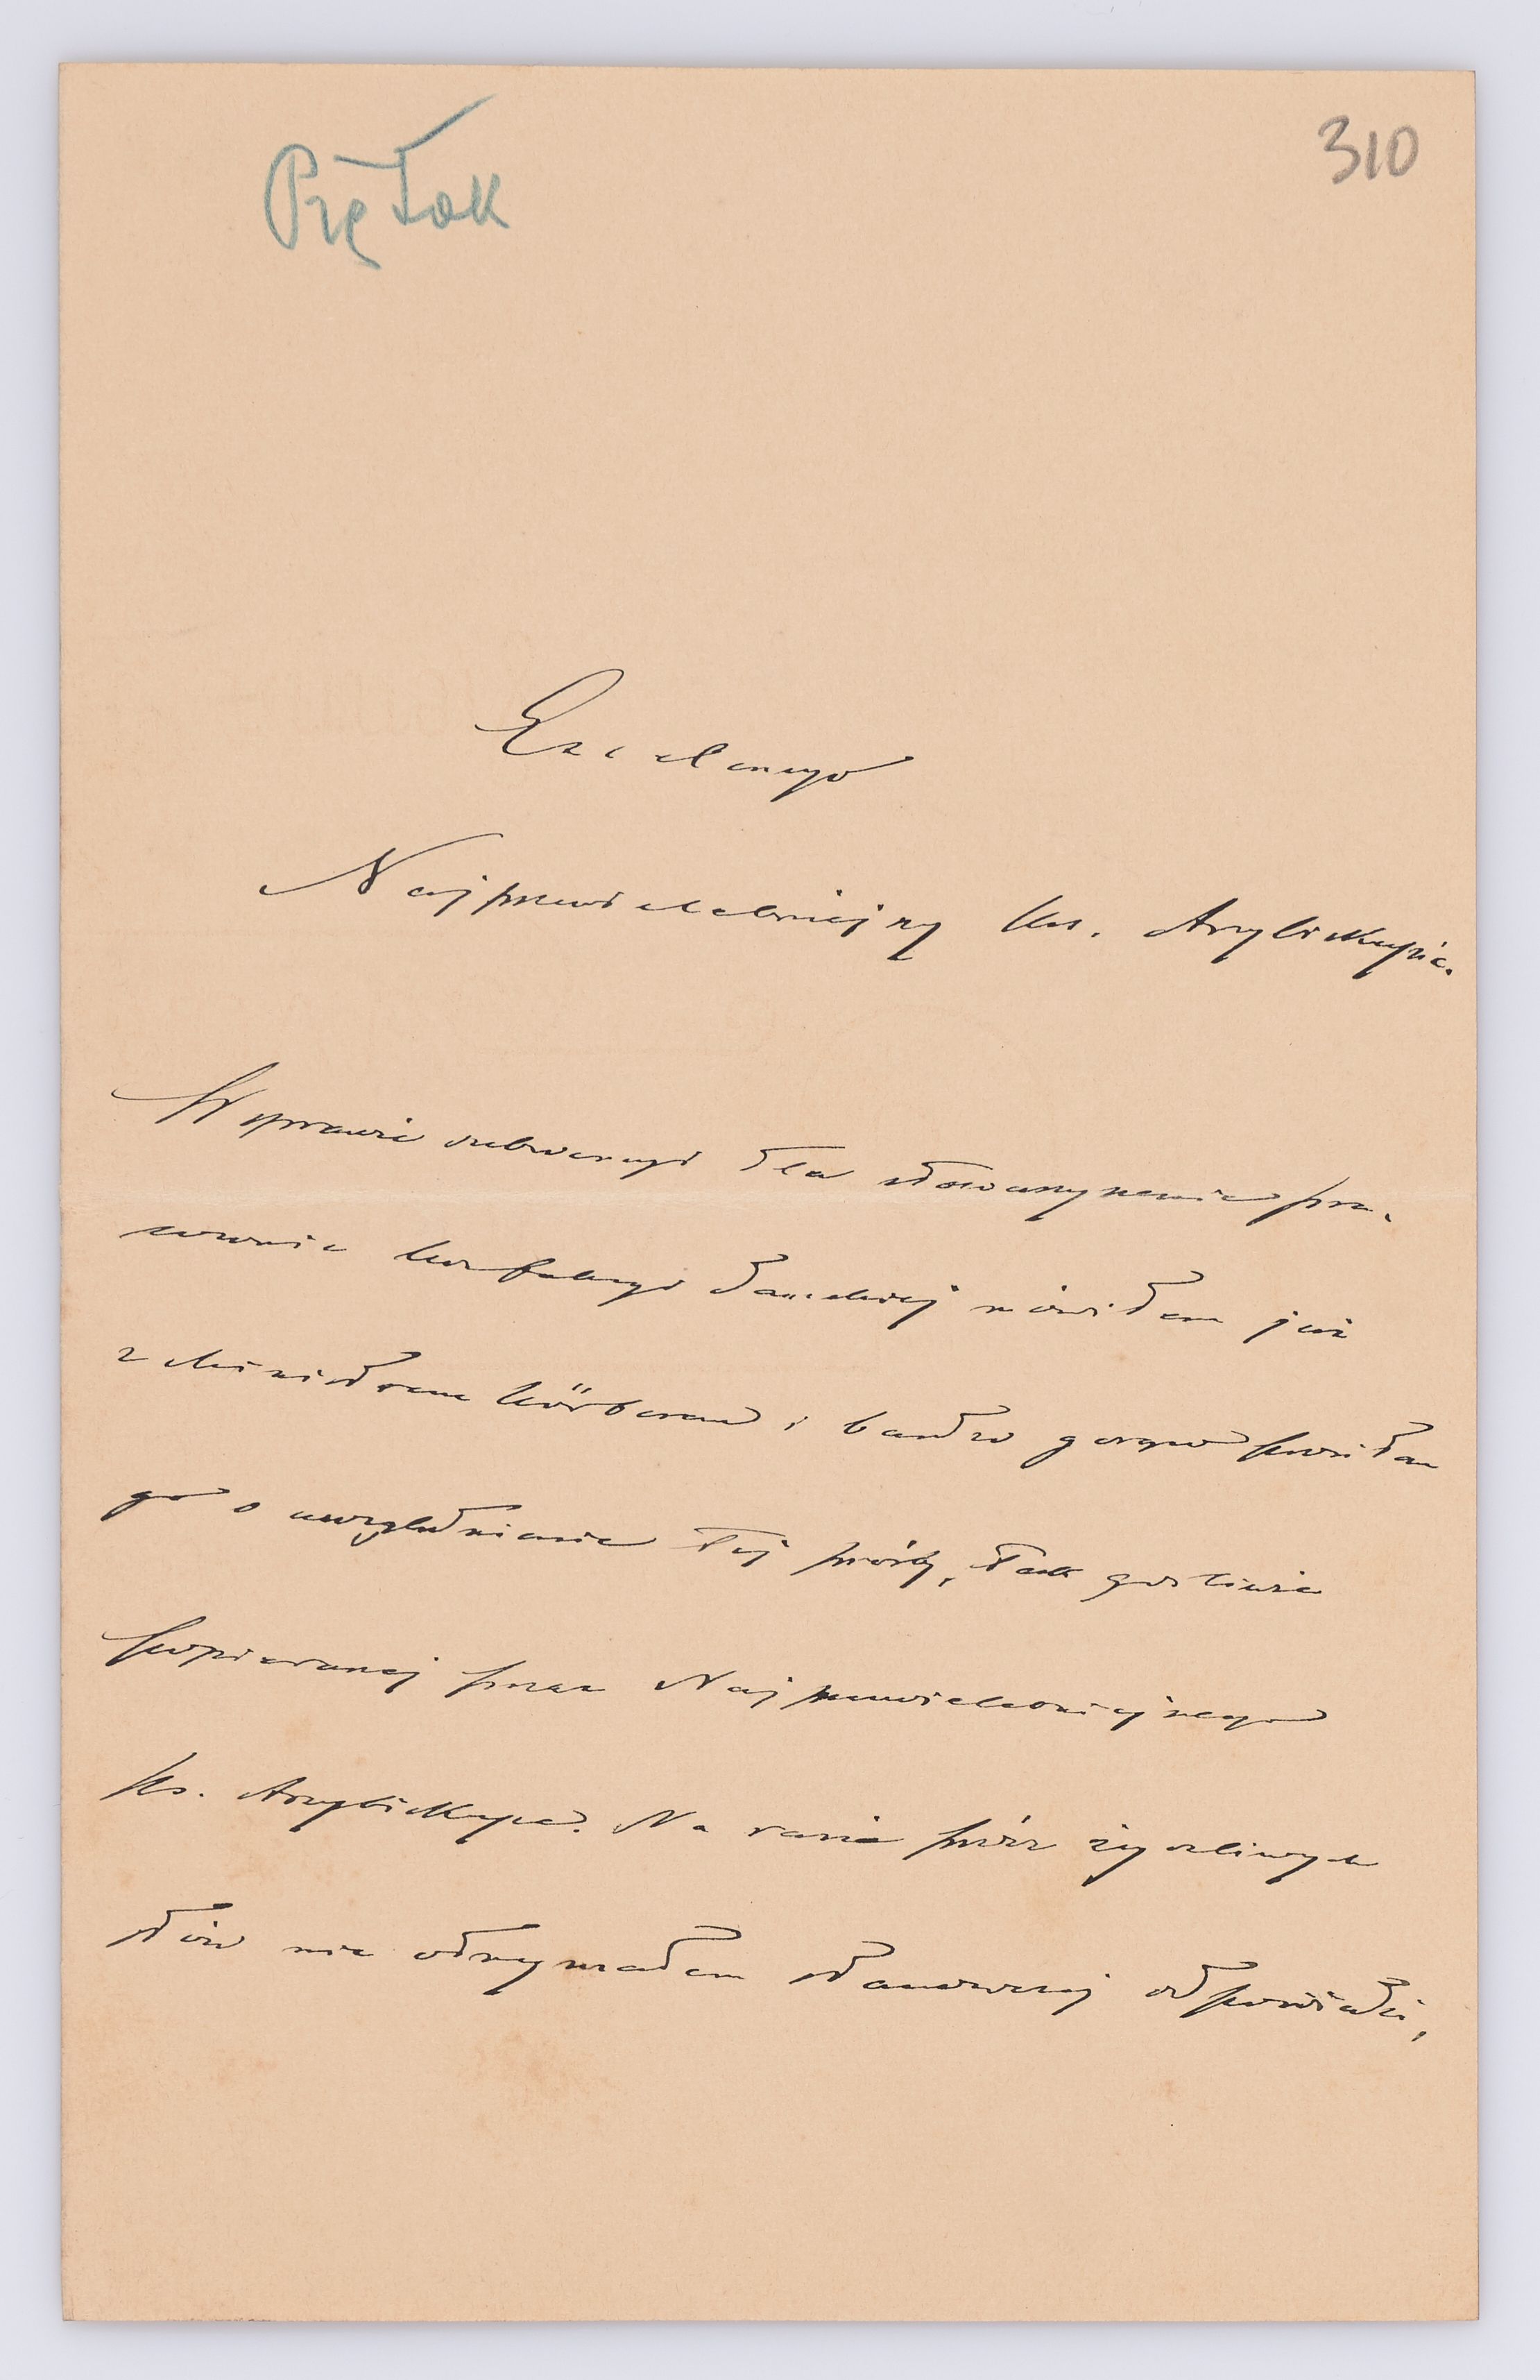 Piętak
310
Excelencyo
Najprzewielebniejszy Ks. Arcybiskupie.
W sprawie subwencyi dla stowarzyszenia pra-
cownic konfekcyi damskiej mówiłem już
z Ministrem Körberem i bardzo gorąco prosiłem
go o uwzględnienie tej prośby, tak gorliwie
popieranej przez Najprzewielebniejszego
Ks. Arcybiskupa. Na razie prócz życzliwych
słów nie otrzymałem stanowczej odpowiedzi,